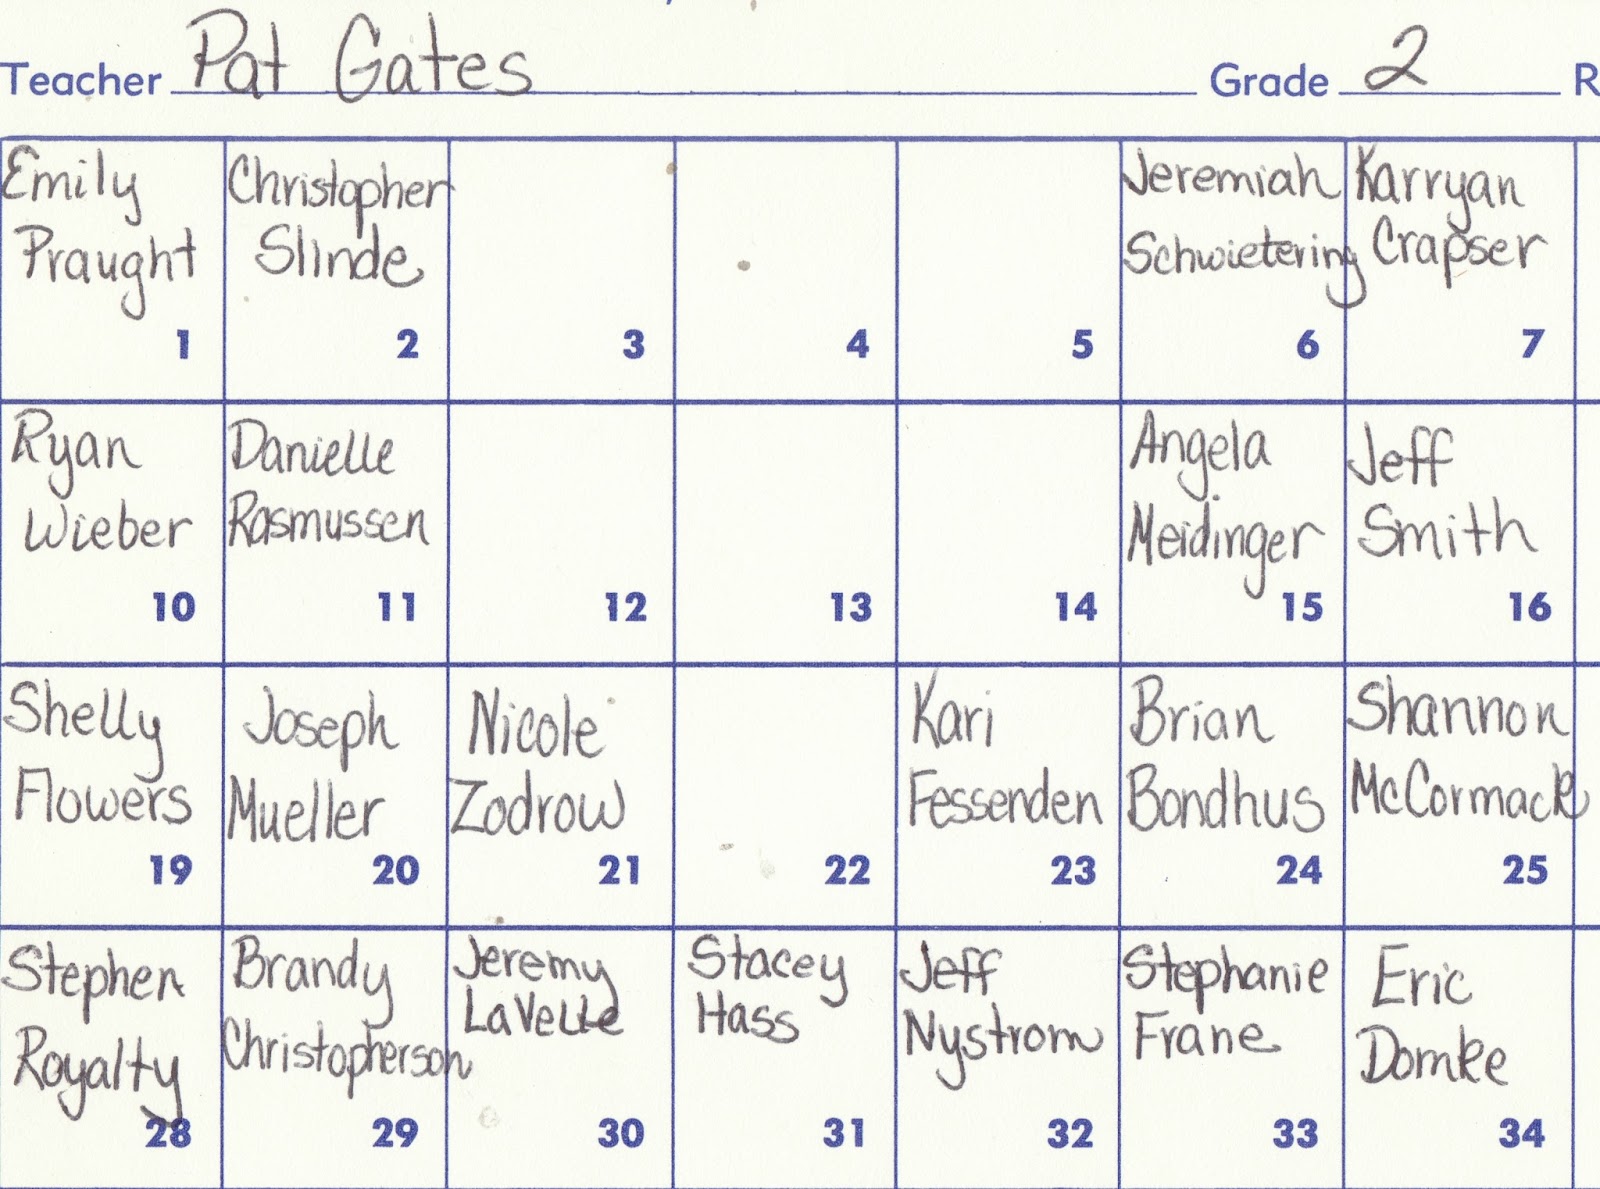 Teacher Pat Gates Grade 2 R
Emily Christopher Jeremiah Karryan
Praught Slinde Schwietering Crapser
1 2 3 4 5 6 7
Ryan Danielle Angela Jeff
Wieber Rasmussen Meidinger Smith
10 11 12 13 14 15 16
Shelly Joseph Nicole Kari Brian Shannon
Flowers Mueller Zodrow Fessenden Bondhus McCormack
19 20 21 22 23 24 25
Stephen Brandy Jeremy Stacey Jeff Stephanie Eric
Royalty Christopherson LaVelle Hass Nystrom Frane Domke
28 29 30 31 32 33 34